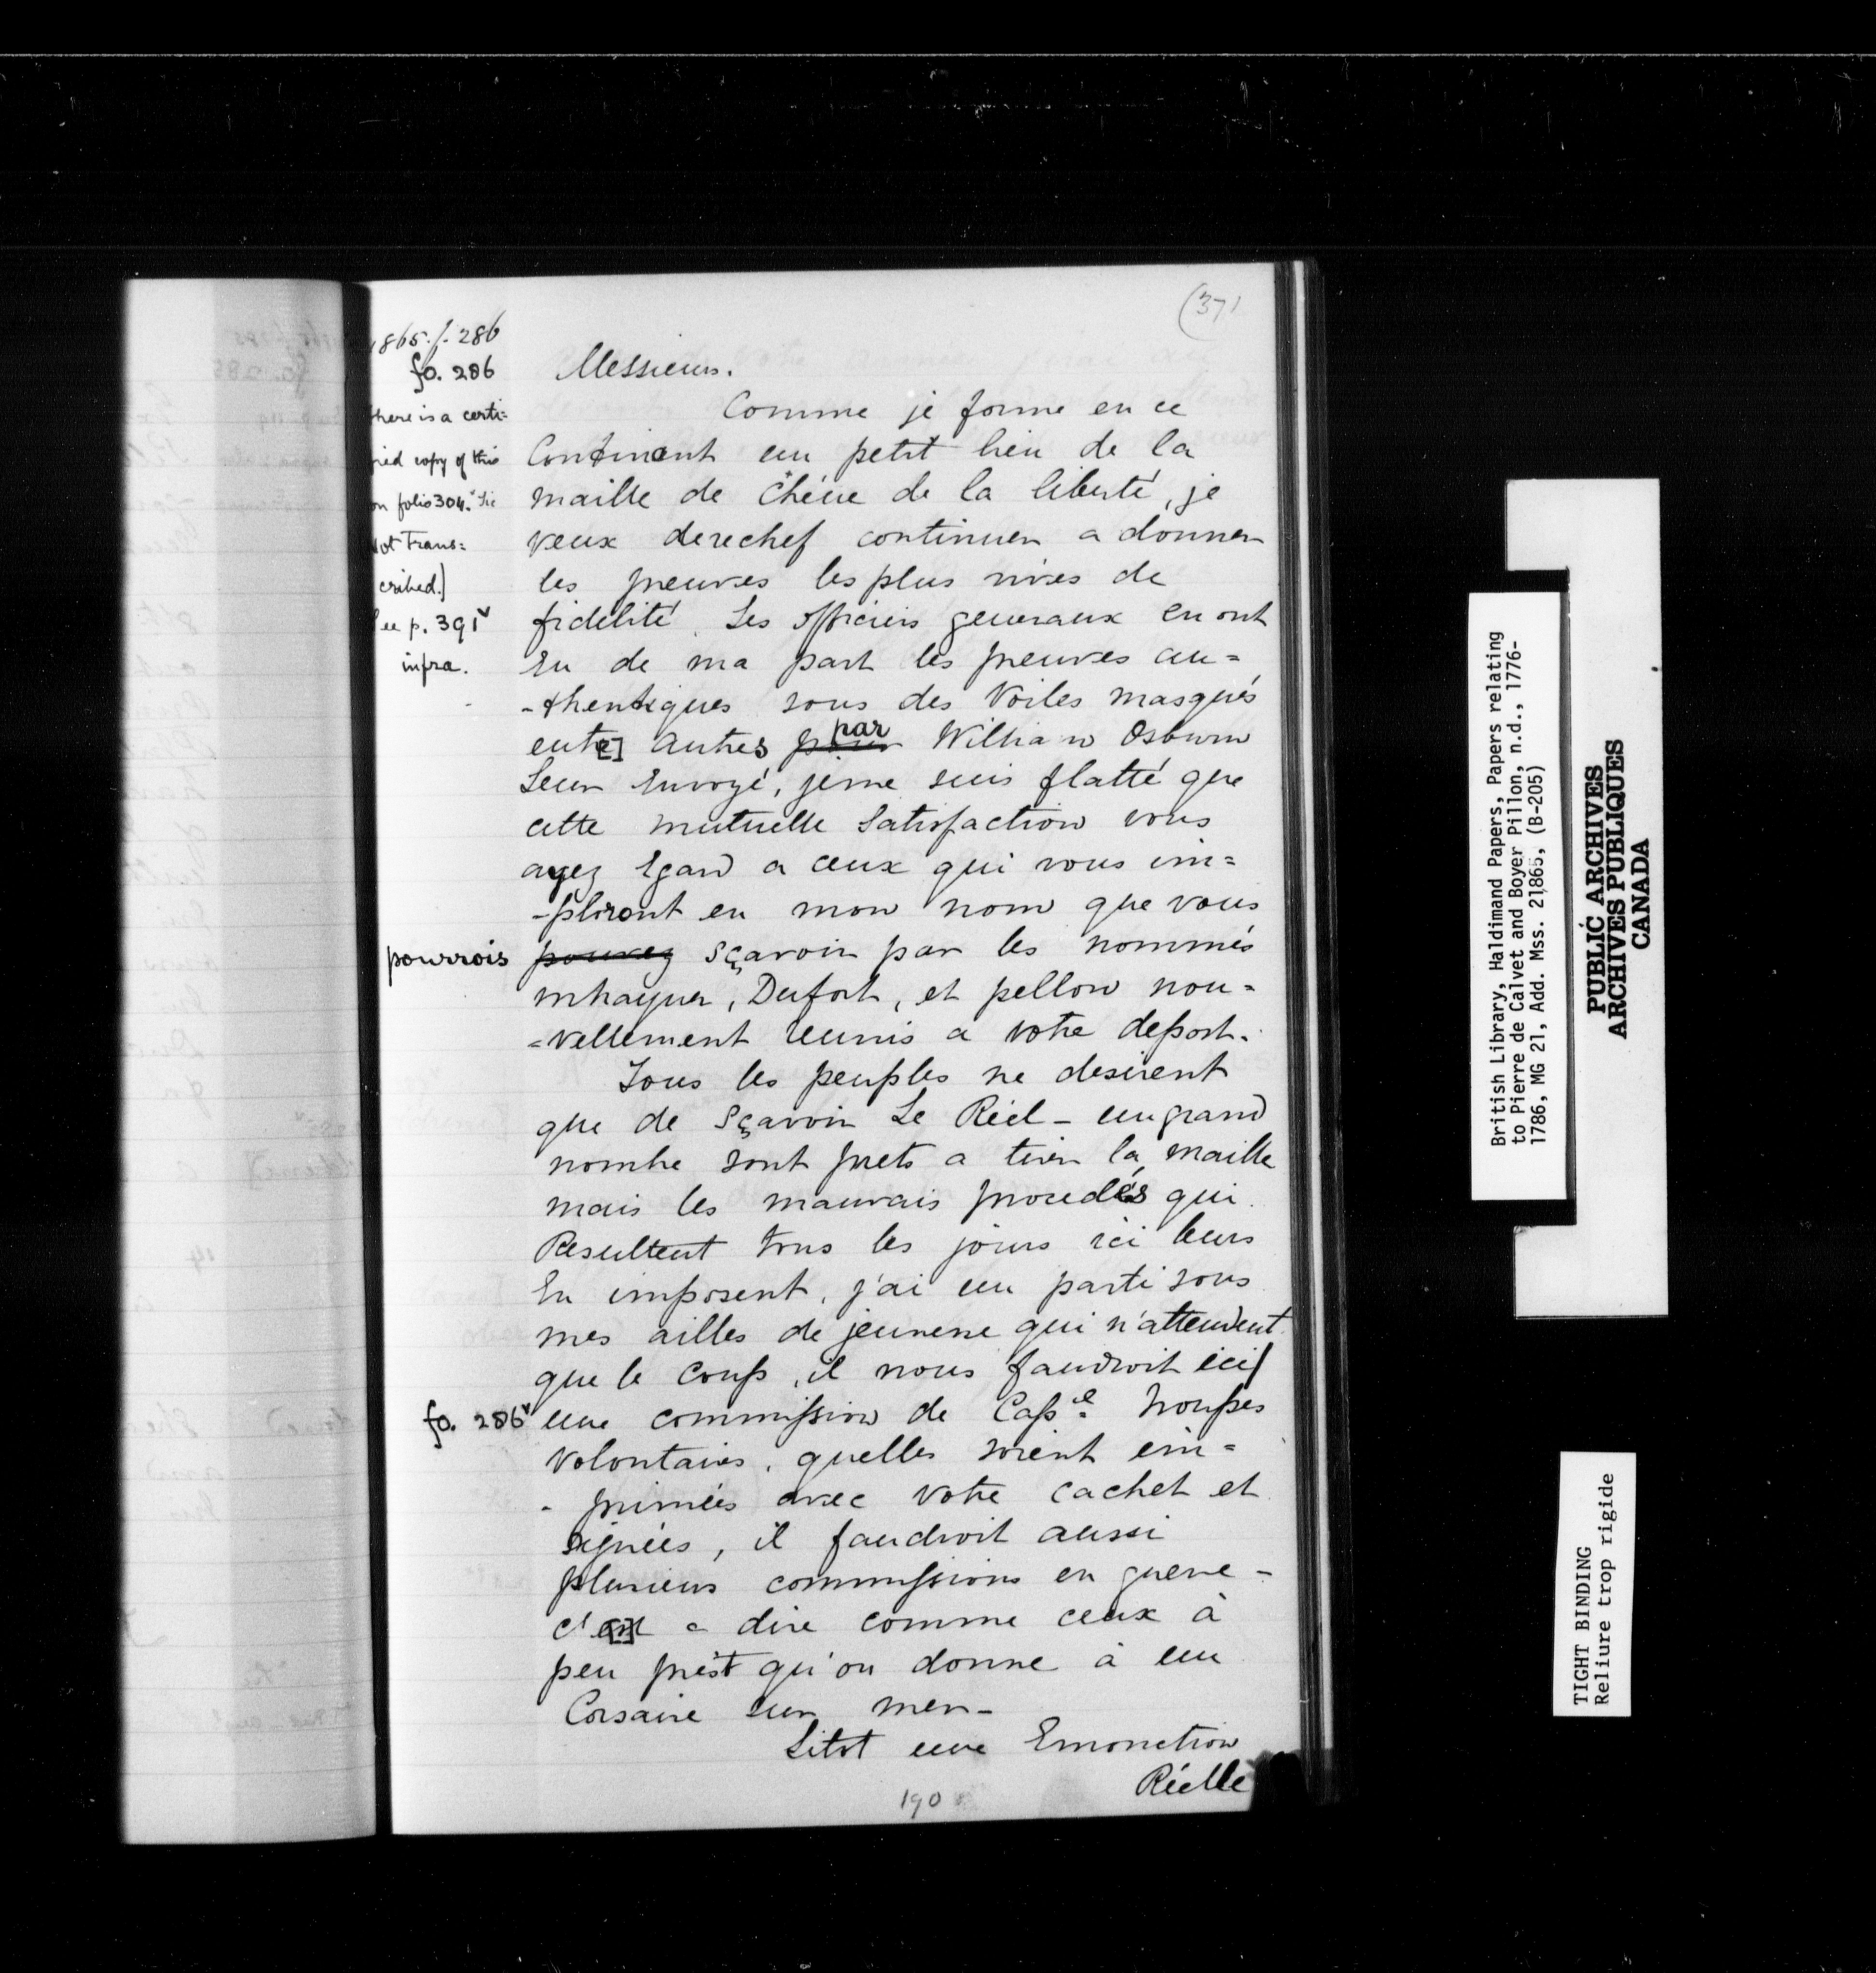 (371
1865. f. 286
fo. 286
there is a certi=
fied copy of this
on folio 304.v
Not Trans=
cribed.]
See p. 391v
infra.
Messieurs.
Comme je forme en ce
Continent un petit lien de la
maille de chéne de la liberté, je
veux derechef continuer a donner
les preuves les plus vives de
fidélité. Les officiers generaux en ont
Eu de ma part les preuves au=
-thentiques sous des Voiles masqués
entr[e] autres pour par William Osburn
Leur Envoyé, je me suis flatté que
cette mutuelle Satisfaction vous
ayez Egard a ceux qui vous im=
-pliront en mon nom que vous
pourrois pouvez sçavoir par les nommés
mhayner, Dufort, et pellon nou=
=vellement reunis a votre deport.
Tous les peuples ne desirent
que de sçavoir Le Réel - un grand
nombre sont prets a tirer la maille
mais les mauvais procedés qui
Resultent tous les jours ici leurs
En imposent, j'ai un parti sous
mes ailles de jeunesse qui n'attendent
que le coup, il nous faudroit ici/
fo. 286v une commission de Cape. troupes
Volontaires, quelles soient im=
- primées avec votre cachet et
signées, il faudroit aussi
plusieurs commissions en guerre -
c'e[s]t a dire comme ceux à
peu prest qu'on donne à un
Corsaire sur mer -
Sitot une Emonction
Réelle
190
British Library, Haldimand Papers, Papers relating
to Pierre de Calvet and Boyer Pillon, n.d., 1776-
1786, MG 21, Add. Mss. 21865, (B-205)
PUBLIC ARCHIVES
ARCHIVES PUBLIQUES
CANADA
TIGHT BINDING
Reliure trop rigide